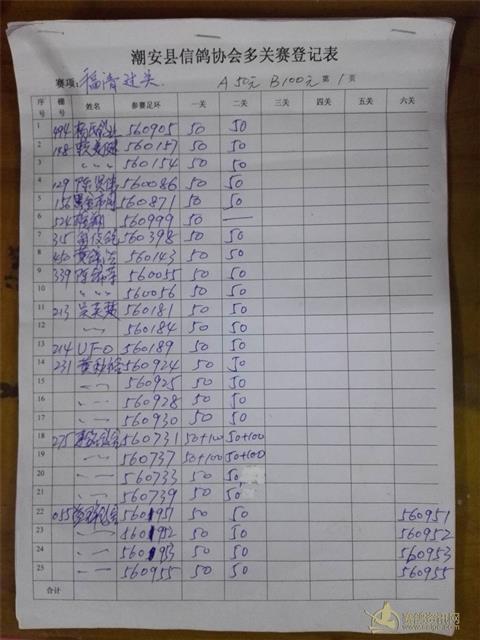 潮安县信鸽协会多关赛登记表
赛项: 福清过关 A50元 B100元 第1页
序号 棚号 姓名 参赛足环 一关 二关 三关 四关 五关 六关
1 494 560905 50 50
2 188 560157 50 50
3 〃 560154 50 50
4 129 560086 50 50
5 156 560871 50 50
6 524 560999 50 —
7 315 560398 50 50
8 450 560143 50 50
9 339 560055 50 50
10 〃 560056 50 50
11 213 560181 50 50
12 〃 560184 50 50
13 214 UFO 560189 50 50
14 231 560924 50 50
15 〃 560925 50 50
16 〃 560928 50 50
17 〃 560930 50 50
18 275 560731 50+100 50+100
19 〃 560737 50+100 50+100
20 〃 560733 50 50
21 〃 560739 50 50
22 055 560951 50 50 560951
23 〃 560952 50 50 560952
24 〃 560953 50 50 560953
25 〃 560955 50 50 560955
合计